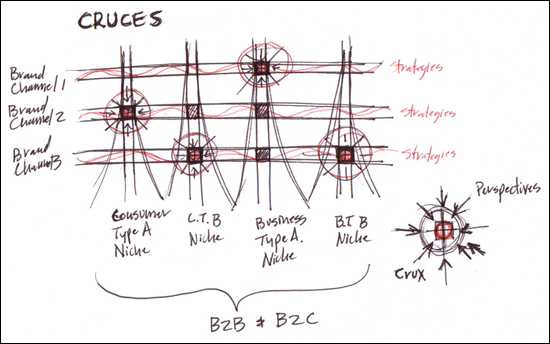 CRUCES
Brand
Channel 1
strategies
Brand
Channel 2
strategies
Brand
Channel 3
strategies
Consumer
Type A
Niche
C.T.B
Niche
Business
Type A.
Niche
B.T B
Niche
Perspectives
Crux
B2B & B2C